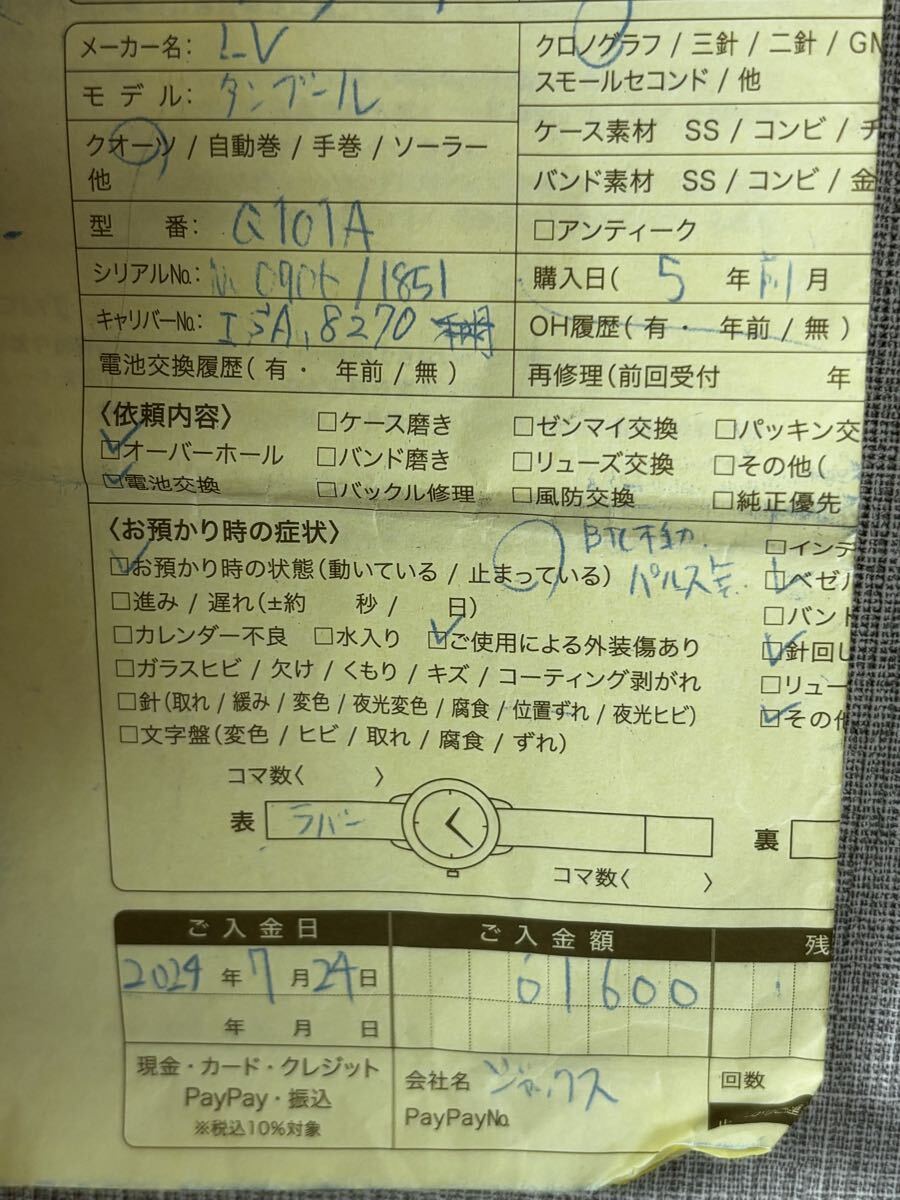 メーカー名: LV
クロノグラフ / 三針 / 二針 / GM
スモールセコンド / 他
モデル: タンブール
クオーツ / 自動巻 / 手巻 / ソーラー
他
ケース素材 SS / コンビ / チ
バンド素材 SS / コンビ / 金
型 番: Q101A
□アンティーク
シリアル№: /1851
購入日( 5 年 前 月
キャリバー№: ISA.8270
OH履歴(有・ 年前 / 無)
電池交換履歴(有・ 年前 / 無)
再修理(前回受付 年
〈依頼内容〉 □ケース磨き □ゼンマイ交換 □パッキン交
☑オーバーホール □バンド磨き □リューズ交換 □その他(
☑電池交換 □バックル修理 □風防交換 □純正優先
〈お預かり時の症状〉
BTC不動.
パルス
□インデ
☑お預かり時の状態(動いている / 止まっている)
☑ベゼル
□進み / 遅れ(±約 秒 / 日)
□バンド
□カレンダー不良 □水入り ☑ご使用による外装傷あり
☑針回し
□ガラスヒビ / 欠け / くもり / キズ / コーティング剥がれ
□リュー
□針(取れ / 緩み / 変色 / 夜光変色 / 腐食 / 位置ずれ / 夜光ヒビ)
☑その他
□文字盤(変色 / ヒビ / 取れ / 腐食 / ずれ)
コマ数〈 〉
表 ラバー
裏
コマ数〈 〉
ご入金日 ご入金額 残
2024 年 7 月 24 日 01600
年 月 日
現金・カード・クレジット
PayPay・振込
※税込10%対象
会社名 ジャックス
PayPay№
回数